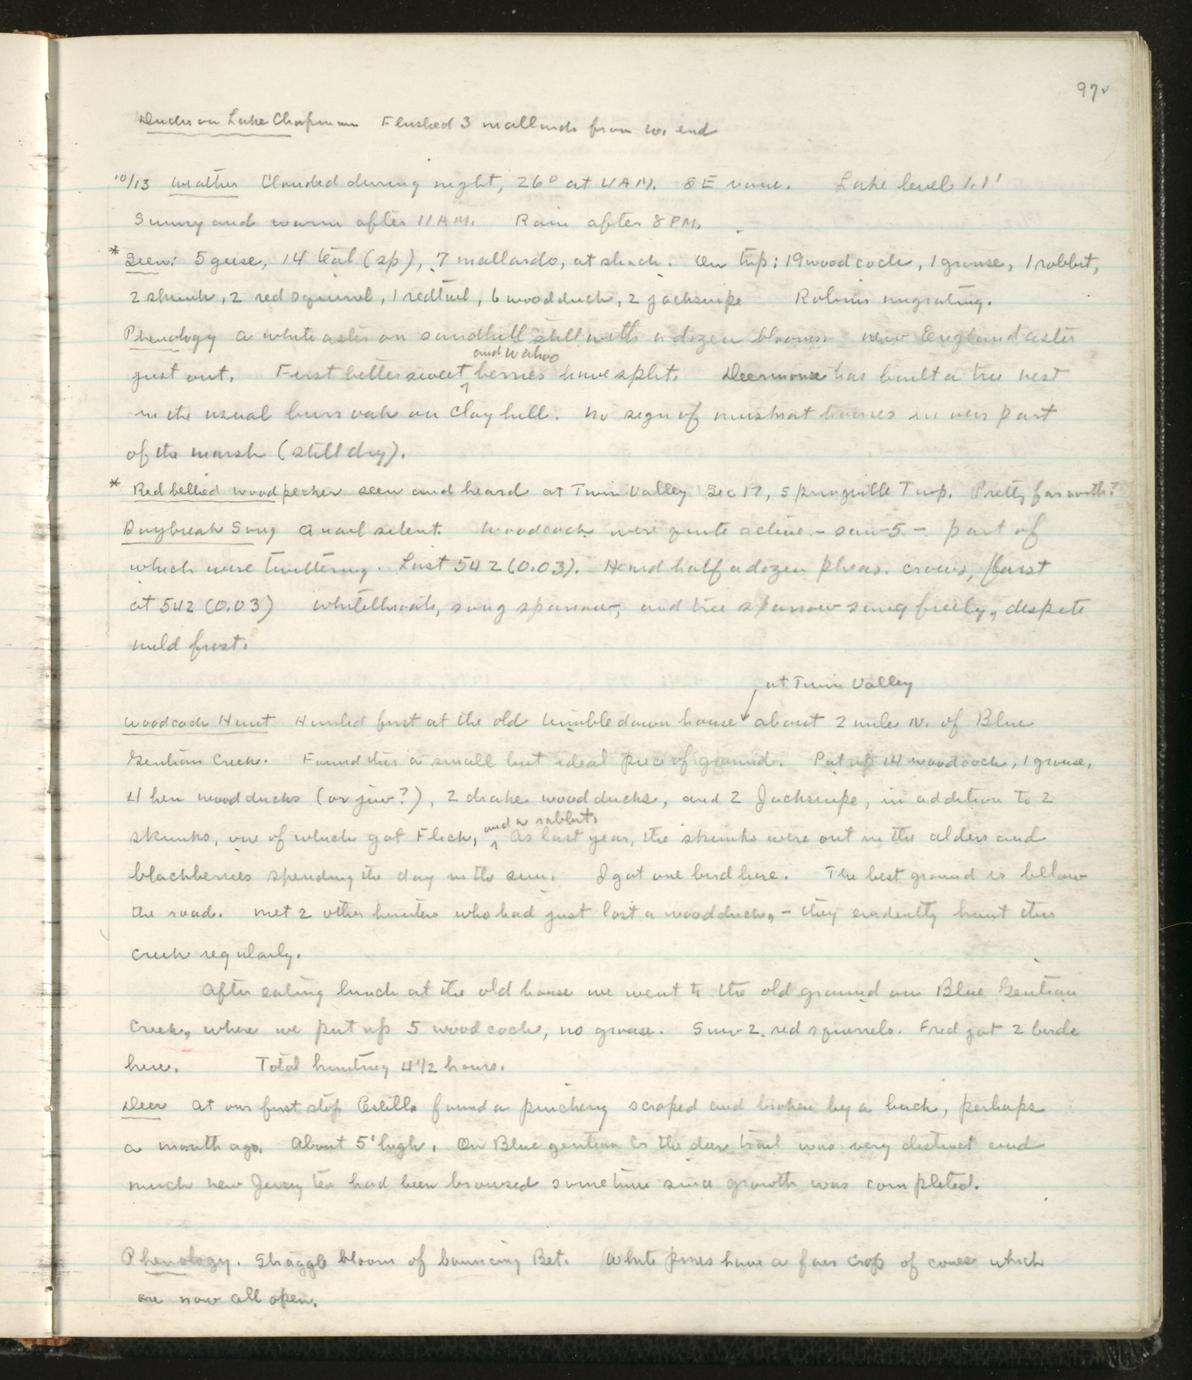 972
Ducks on Lake Chapman Flushed 3 mallards from W. end
10/13 Weather Clouded during night, 26° at 4 AM. SE vane. Lake level 1.1'
Sunny and warm after 11 AM. Rain after 8 PM.
* Seen: 5 geese, 14 teal (sp), 7 mallards, at shack. On trip: 19 woodcock, 1 grouse, 1 rabbit,
2 skunk, 2 red squirrel, 1 redtail, 6 woodduck, 2 jacksnipe Robins migrating.
Phenology A white aster on sandhill still with a dozen blooms New England aster
and wahoo
just out. First bittersweet ^ berries have split. Deermouse has built a tree nest
in the usual burr oak on Clay hill. No sign of muskrat houses in our part
of the marsh (still dry).
* Red bellied woodpecker seen and heard at Twin Valley Sec 17, Springville Twp. Pretty far north?
Daybreak Song Quail silent. Woodcock were quite active - saw 5 - part of
which were twittering. Last 542 (0.03). Heard half a dozen pheas. crows, first
at 542 (0.03) Whitethroats, song sparrow, and tree sparrow sang freely, despite
mild frost.
at Twin Valley
Woodcock Hunt Hunted first at the old tumbledown house about 2 mile N. of Blue
Gentian Creek. Found this a small but ideal piece of ground. Put up 14 woodcock, 1 grouse,
4 hen woodducks (or juv?), 2 drake woodducks, and 2 Jacksnipe, in addition to 2
and a rabbit.
skunks, one of which got Flick, ^ As last year, the skunks were out in the alders and
blackberries spending the day in the sun. I got one bird here. The best ground is below
the road. Met 2 other hunters who had just lost a woodduck, - they evidently hunt this
creek regularly.
After eating lunch at the old house we went to the old ground on Blue Gentian
Creek, where we put up 5 woodcock, no grouse. Saw 2 red squirrels. Fred got 2 birds
here. Total hunting 4 1/2 hours.
Deer At our first stop Estella found a pincherry scraped and broken by a buck, perhaps
a month ago. About 5' high. On Blue gentian Cr the deer trail was very distinct and
much new Jersey tea had been browsed sometime since growth was completed.
Phenology. Straggle bloom of bouncing Bet. White pines have a fair crop of cones which
are now all open.